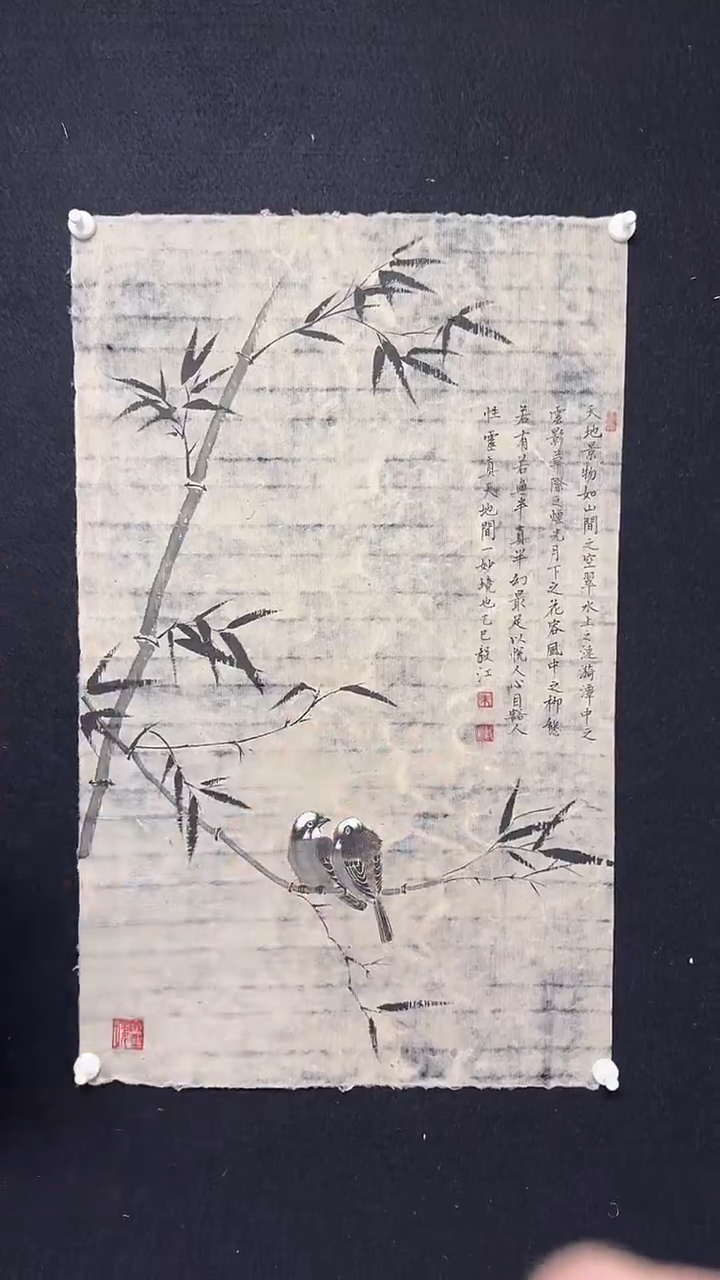 天地景物如山間之空翠水上之漣漪潭中之
雲影草際之煙光月下之花容風中之柳態
若有若無半真半幻最足以悅人心目豁人
性靈真天地間一妙境也乙巳毅江